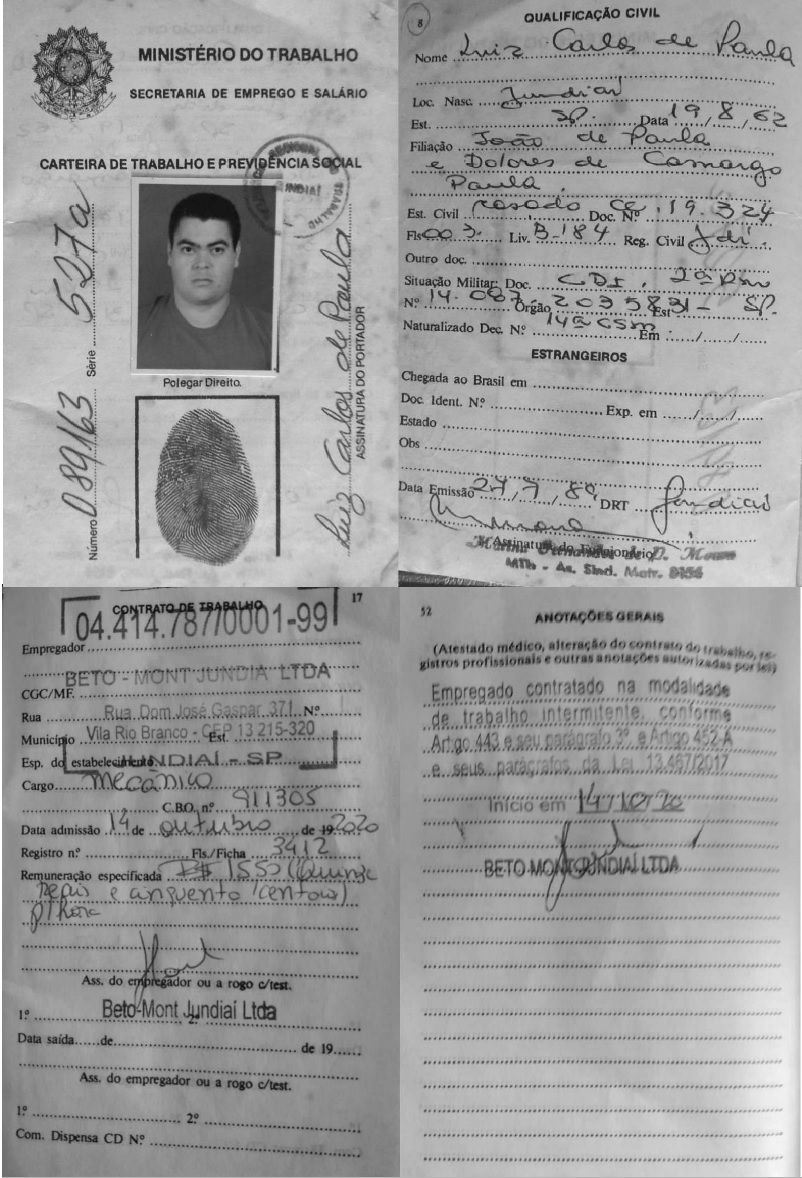 MINISTÉRIO DO TRABALHO
SECRETARIA DE EMPREGO E SALÁRIO
CARTEIRA DE TRABALHO E PREVIDÊNCIA SOCIAL
Polegar Direito.
Número 089163 Série 527a
Luiz Carlos de Paula
ASSINATURA DO PORTADOR
8
QUALIFICAÇÃO CIVIL
Nome Luiz Carlos de Paula
Loc. Nasc. Jundiaí
Est. SP. Data 19/8/62
Filiação João de Paula
e Dolores de Camargo
Paula.
Est. Civil casado Doc. Nº 19.324
Fls 003 Liv. B-184 Reg. Civil Jdí.
Outro doc.
Situação Militar Doc. CDI,
N.º 14.087 Órgão 203583 Est SP.
Naturalizado Dec. N.º 14ª CSM Em ..../..../....
ESTRANGEIROS
Chegada ao Brasil em
Doc. Ident. N.º Exp. em ..../..../....
Estado
Obs
Data Emissão DRT Jundiaí
Assinatura do Funcionário
MTb - As. Sind. Matr.
17
CONTRATO DE TRABALHO
04.414.787/0001-99
Empregador
BETO - MONT JUNDIA LTDA
CGC/MF.
Rua Rua Dom José Gaspar 371 N.º
Município Vila Rio Branco - CEP 13 215-320 Est.
Esp. do estabelecimento NDIAÍ - SP
Cargo mecânico
C.B.O. n.º 911305
Data admissão 14 de outubro de 19 2020
Registro n.º Fls./Ficha 3412
Remuneração especificada R$ 15,50 (Quinze
reais e cinquenta centavos)
p/hora
Ass. do empregador ou a rogo c/test.
1.º Beto-Mont Jundiaí Ltda 2.
Data saída......de de 19......
Ass. do empregador ou a rogo c/test.
1.º 2.º
Com. Dispensa CD N.º
52
ANOTAÇÕES GERAIS
(Atestado médico, alteração do contrato do trabalho, re-
gistros profissionais e outras anotações autorizadas por lei)
Empregado contratado na modalidade
de trabalho intermitente, conforme
Artigo 443 e seu parágrafo 3º e Artigo 452-A
e seus parágrafos da Lei 13.467/2017
Início em 14/10/20
BETO-MONT JUNDIAÍ LTDA